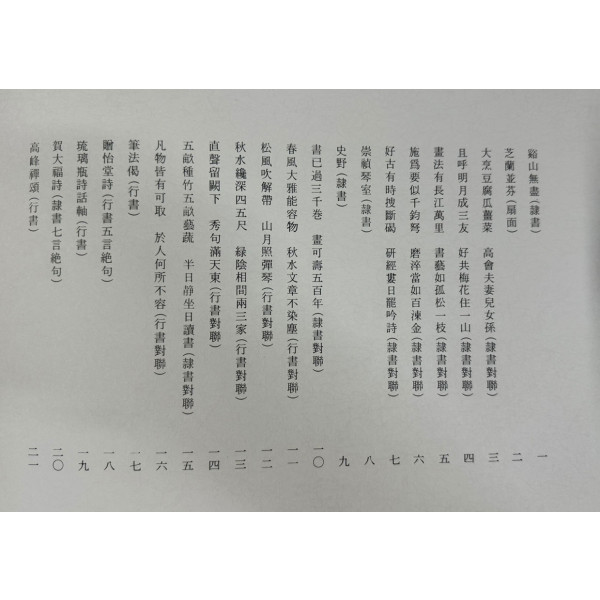 谿山無盡(隷書) 一
芝蘭並芬(扇面) 二
大烹豆腐瓜薑菜 高會夫妻兒女孫(隷書對聯) 三
且呼明月成三友 好共梅花住一山(隷書對聯) 四
畫法有長江萬里 書藝如孤松一枝(隷書對聯) 五
施爲要似千鈞弩 磨淬當如百湅金(隷書對聯) 六
好古有時搜斷碣 研經婁日罷吟詩(隷書對聯) 七
崇禎琴室(隷書) 八
史野(隷書) 九
書已過三千卷 畫可壽五百年(隷書對聯) 一〇
春風大雅能容物 秋水文章不染塵(行書對聯) 一一
松風吹解帶 山月照彈琴(行書對聯) 一二
秋水纔深四五尺 綠陰相間兩三家(行書對聯) 一三
直聲留闕下 秀句滿天東(行書對聯) 一四
五畝種竹五畝藝蔬 半日靜坐半日讀書(隷書對聯) 一五
凡物皆有可取 於人何所不容(行書對聯) 一六
筆法偈(行書) 一七
贈怡堂詩(行書五言絶句) 一八
琉璃瓶詩話軸(行書) 一九
賀大福詩(隷書七言絶句) 二〇
高峰禪頌(行書) 二一